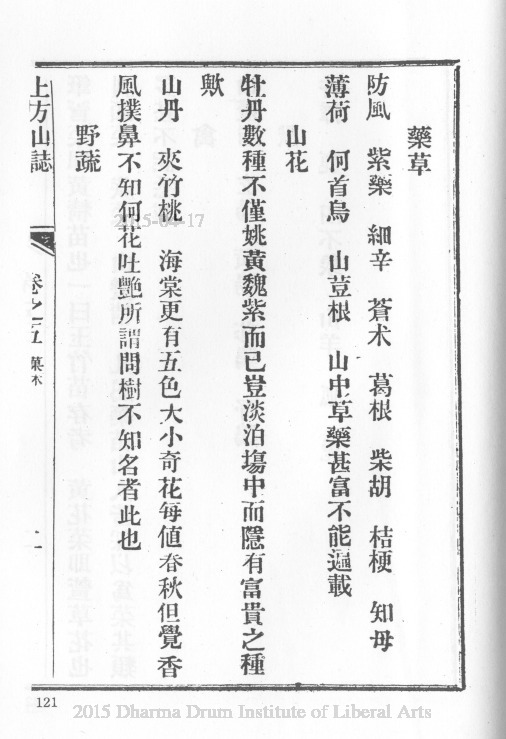 藥草
防風　紫藥　細辛　蒼朮　葛根　柴胡　桔梗　知母
薄荷　何首烏　山荳根　山中草藥甚富不能遍載
山花
牡丹數種不僅姚黃魏紫而已豈淡泊塲中而隱有富貴之種
歟
山丹　夾竹桃　海棠更有五色大小奇花每値春秋但覺香
風撲鼻不知何花吐艷所謂問樹不知名者此也
野蔬
上方山誌　卷之五　菓木　一一
121
2015-04-17
2015 Dharma Drum Institute of Liberal Arts